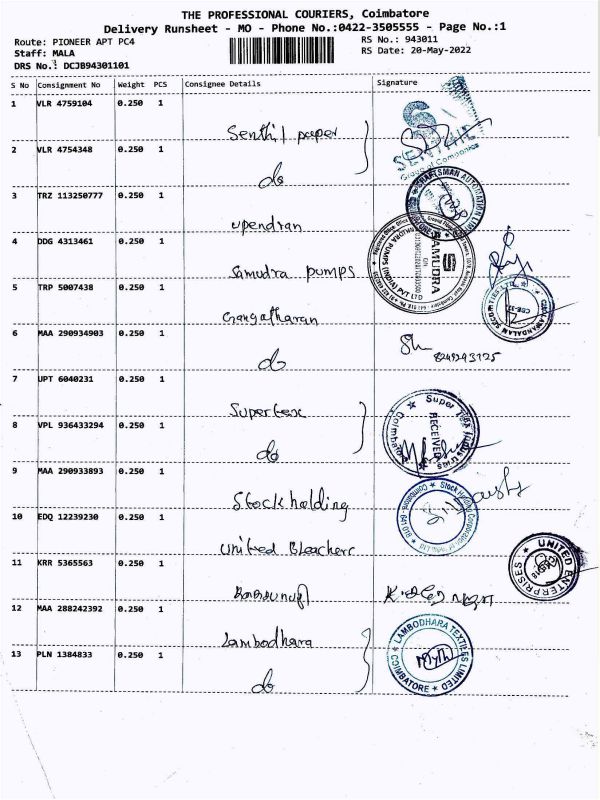 THE PROFESSIONAL COURIERS, Coimbatore
Delivery Runsheet - MO - Phone No.:0422-3505555 - Page No.:1
Route: PIONEER APT PC4
RS No.: 943011
Staff: MALA
RS Date: 20-May-2022
DRS No.: DCJB94301101
S No Consignment No Weight PCS Consignee Details Signature
1 VLR 4759104 0.250 1
Senthil paper
2 VLR 4754348 0.250 1
do
SENTHIL
Group of Companies
3 TRZ 113250777 0.250 1
Upendran
CRAFTSMAN AUTOMATION LIMITED
4 DDG 4313461 0.250 1
Samudra pumps
SAMUDRA PUMPS (INDIA) PVT LTD
SAMUDRA
5 TRP 5007438 0.250 1
Gangatharan
6 MAA 290934903 0.250 1
do
8249243125
7 UPT 6040231 0.250 1
Supertex
8 VPL 936433294 0.250 1
do
Super Tex Industries
RECEIVED
Coimbatore
9 MAA 290933893 0.250 1
Stock holding
Stock Holding Corporation
10 EDQ 12239230 0.250 1
United Bleachers
UNITED ENTERPRISES
11 KRR 5365563 0.250 1
12 MAA 288242392 0.250 1
Lambodhara
13 PLN 1384833 0.250 1
do
LAMBODHARA TEXTILES LIMITED
COIMBATORE